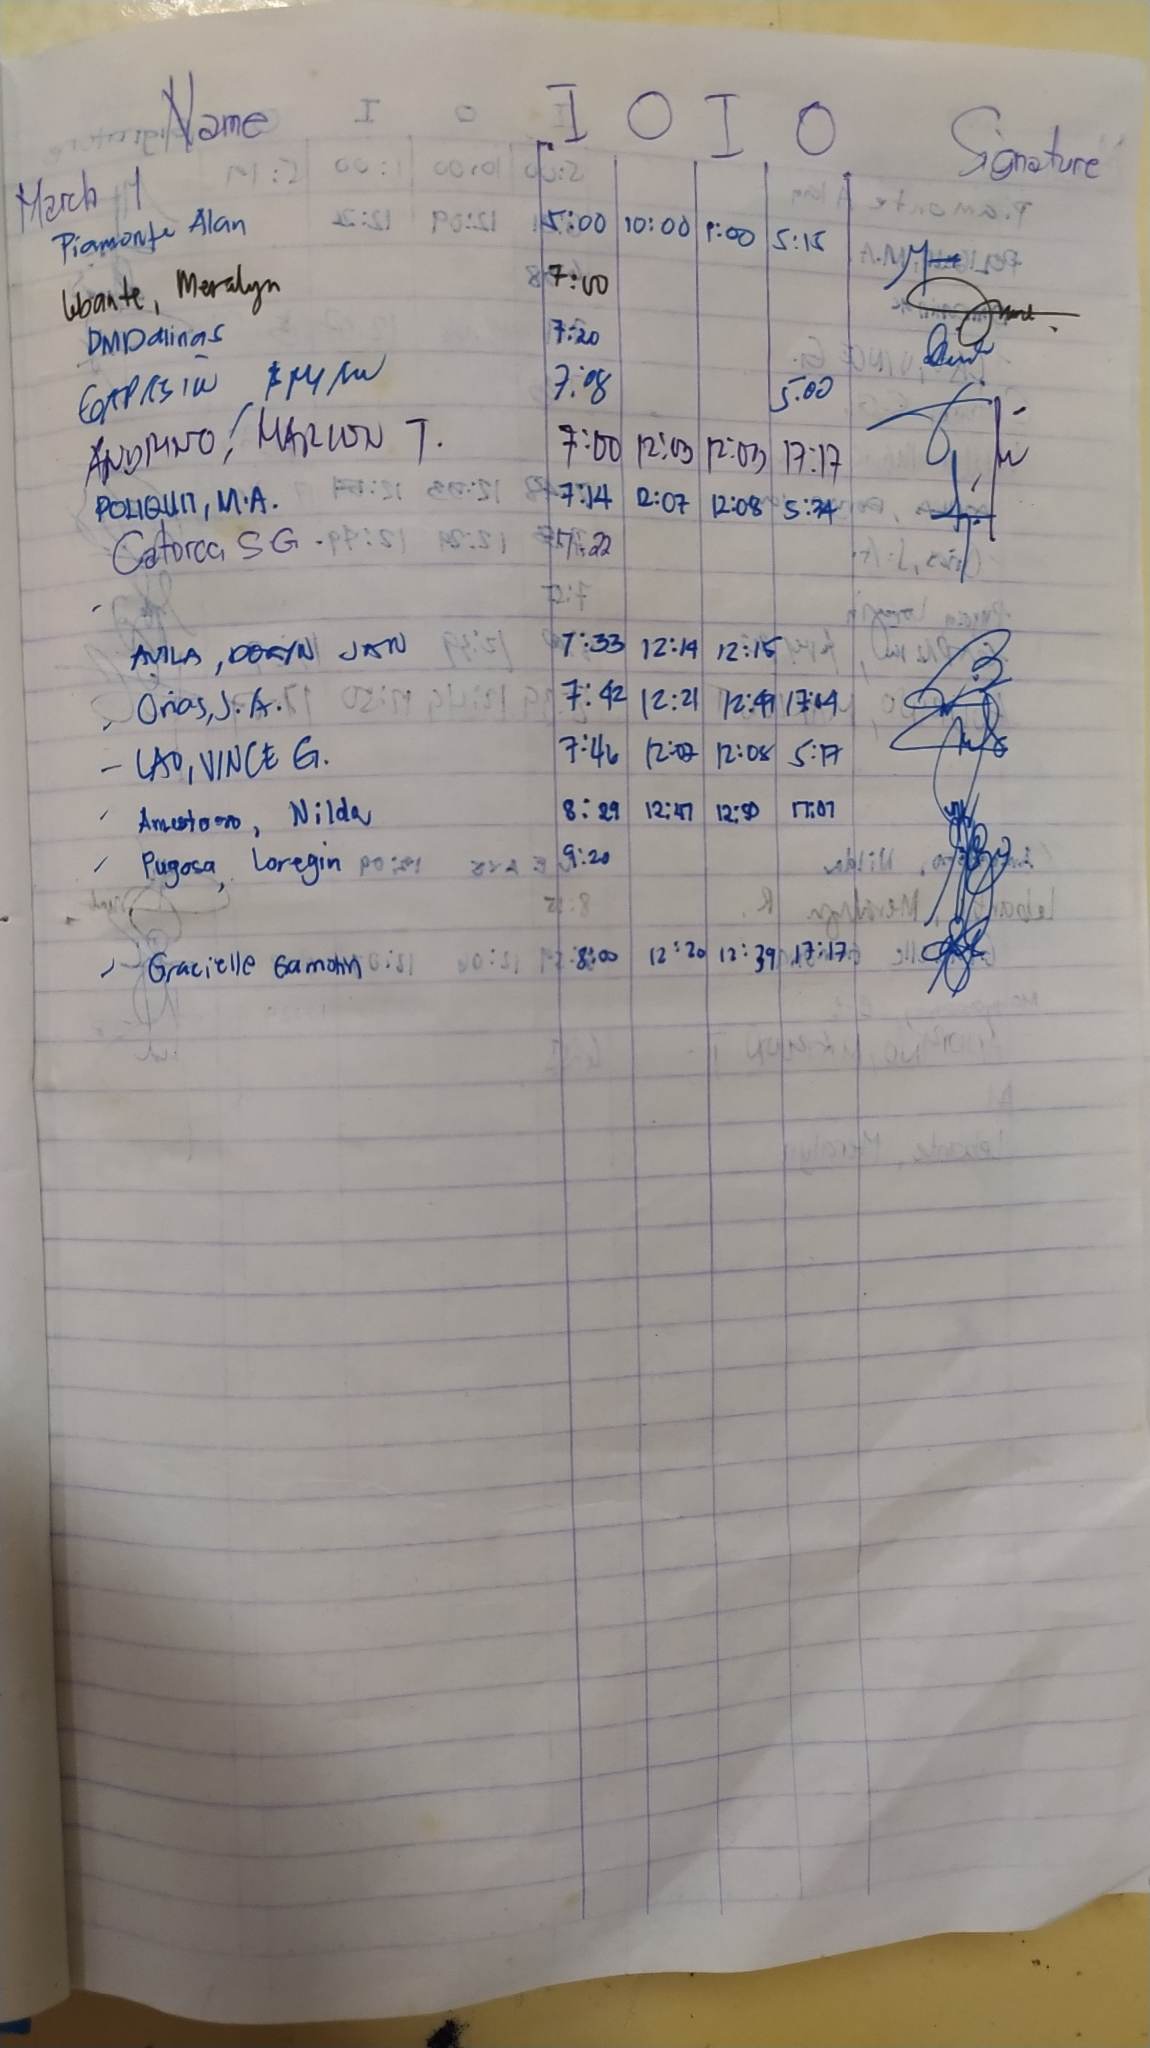 Name I O I O Signature
March 1
Piamonte Alan 5:00 10:00 1:00 5:15
Lebante, Meralyn 7:00
DMDalinas 7:20
7:08 5:00
ANDRINO, MARLON T. 7:00 12:03 12:03 17:17
POLIQUIT, M.A. 7:14 12:07 12:08 5:34
Catorca S G. 7:22
AVILA, JAN 7:33 12:14 12:15
Orias, J.A. 7:42 12:21 17:04
- LAO, VINCE G. 7:46 12:07 12:08 5:17
Nilda 8:29 12:47 12:50 17:07
Pugosa, Loregin 9:20
Gracielle Gamotin 8:00 12:20 12:39 17:17